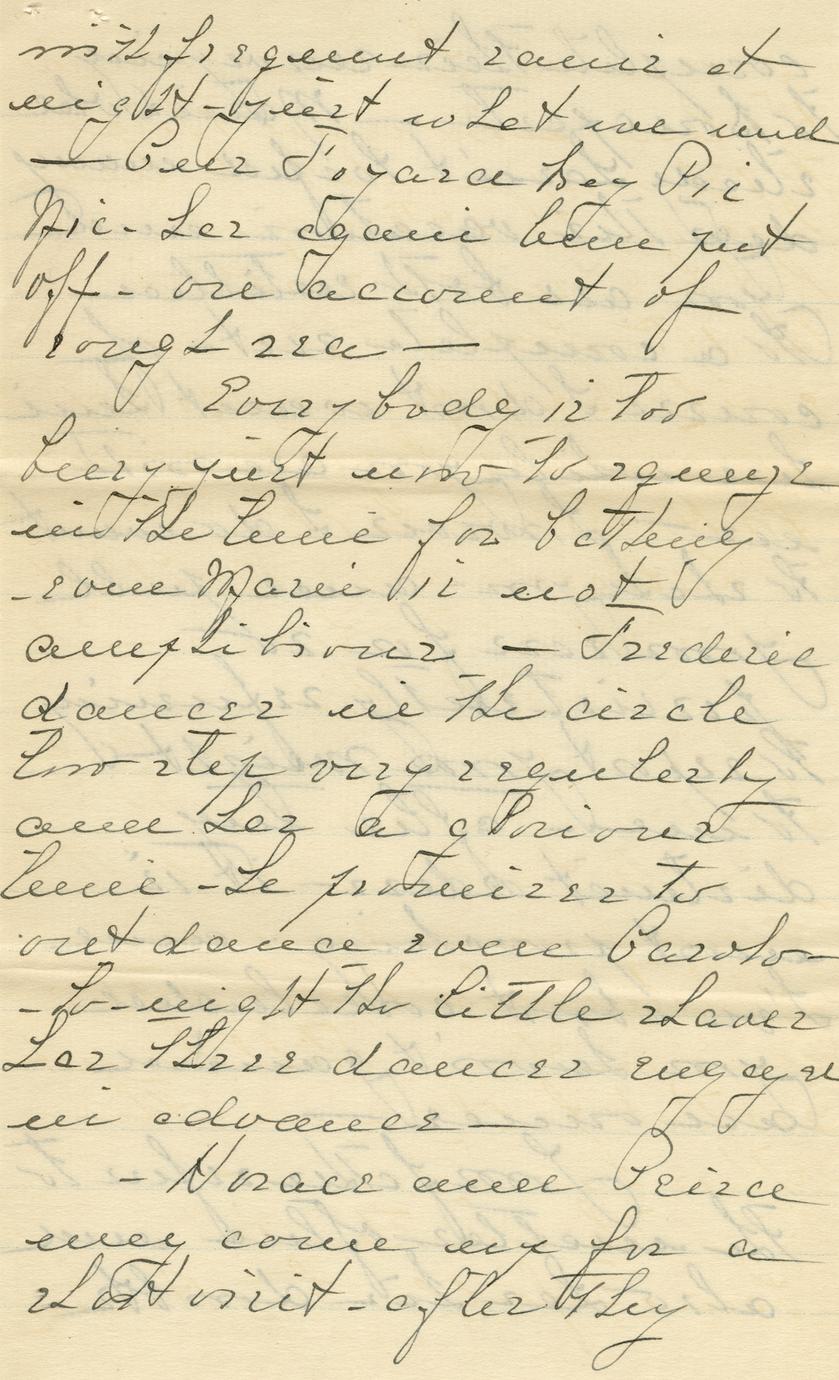 with frequent rains at
night - just what we need
— Our Toyara Bay Pic
Nic - has again been put
off - on account of
rough sea —
Everybody is too
busy just now to squeeze
in the time for bathing
- some Marie is not
amphibious — Frederic
dances in the circle
two step very regularly
and has a glorious
time - he promises to
out dance even Carolo
- to-night the little shaver
has three dances engaged
in advance —
- Horace and Peirce
may come up for a
short visit - after they